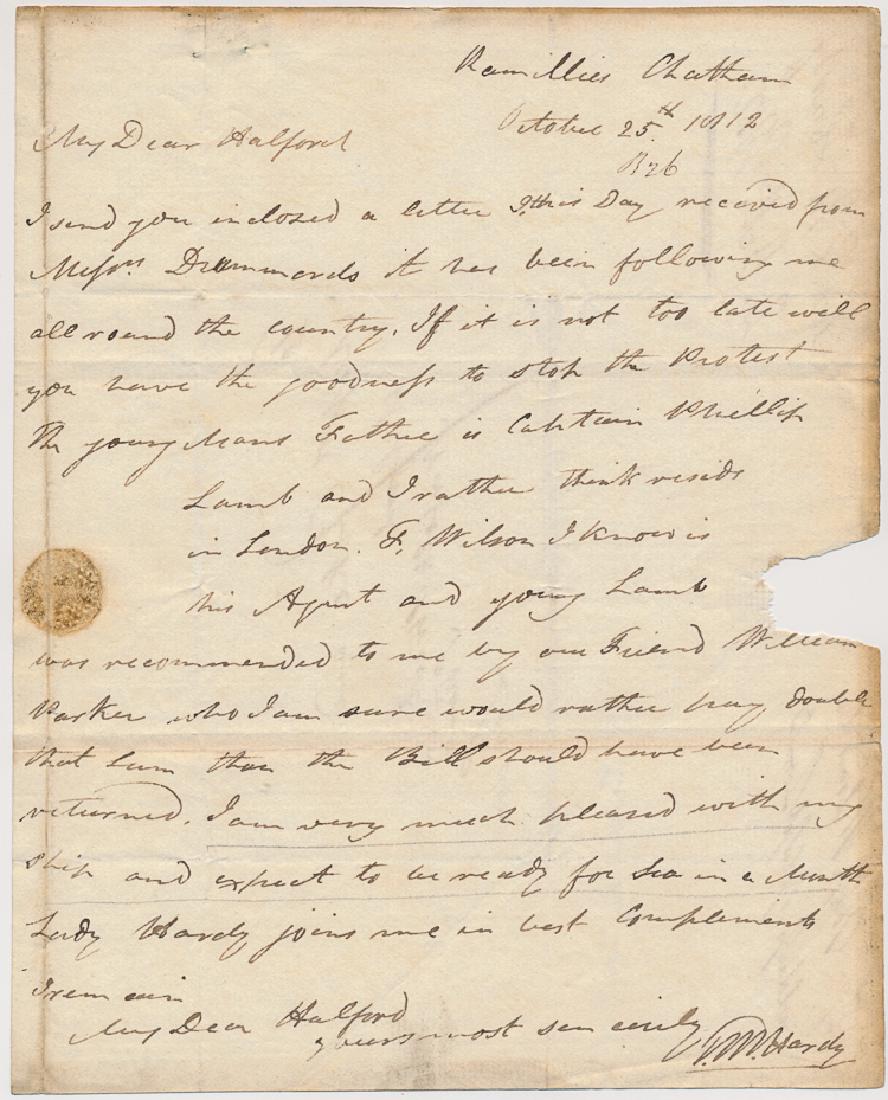 Ramillies Chatham
October 25th 1812
My Dear Halford
I send you inclosed a letter I this Day received from
Messrs Drummonds it has been following me
all round the country. If it is not too late will
you have the goodness to stop the Protest
The young Mans Father is Captain Phillip
Lamb and I rather think resids
in London. F, Wilson I know is
his Agent and young Lamb
was recommended to me by our Friend William
Parker who I am sure would rather pay double
that Sum than the Bill should have been
returned. I am very much pleased with my
ship and expect to be ready for Sea in a Month
Lady Hardy joins me in best Complements
I remain
My Dear Halford
yours most sencerily T.M. Hardy